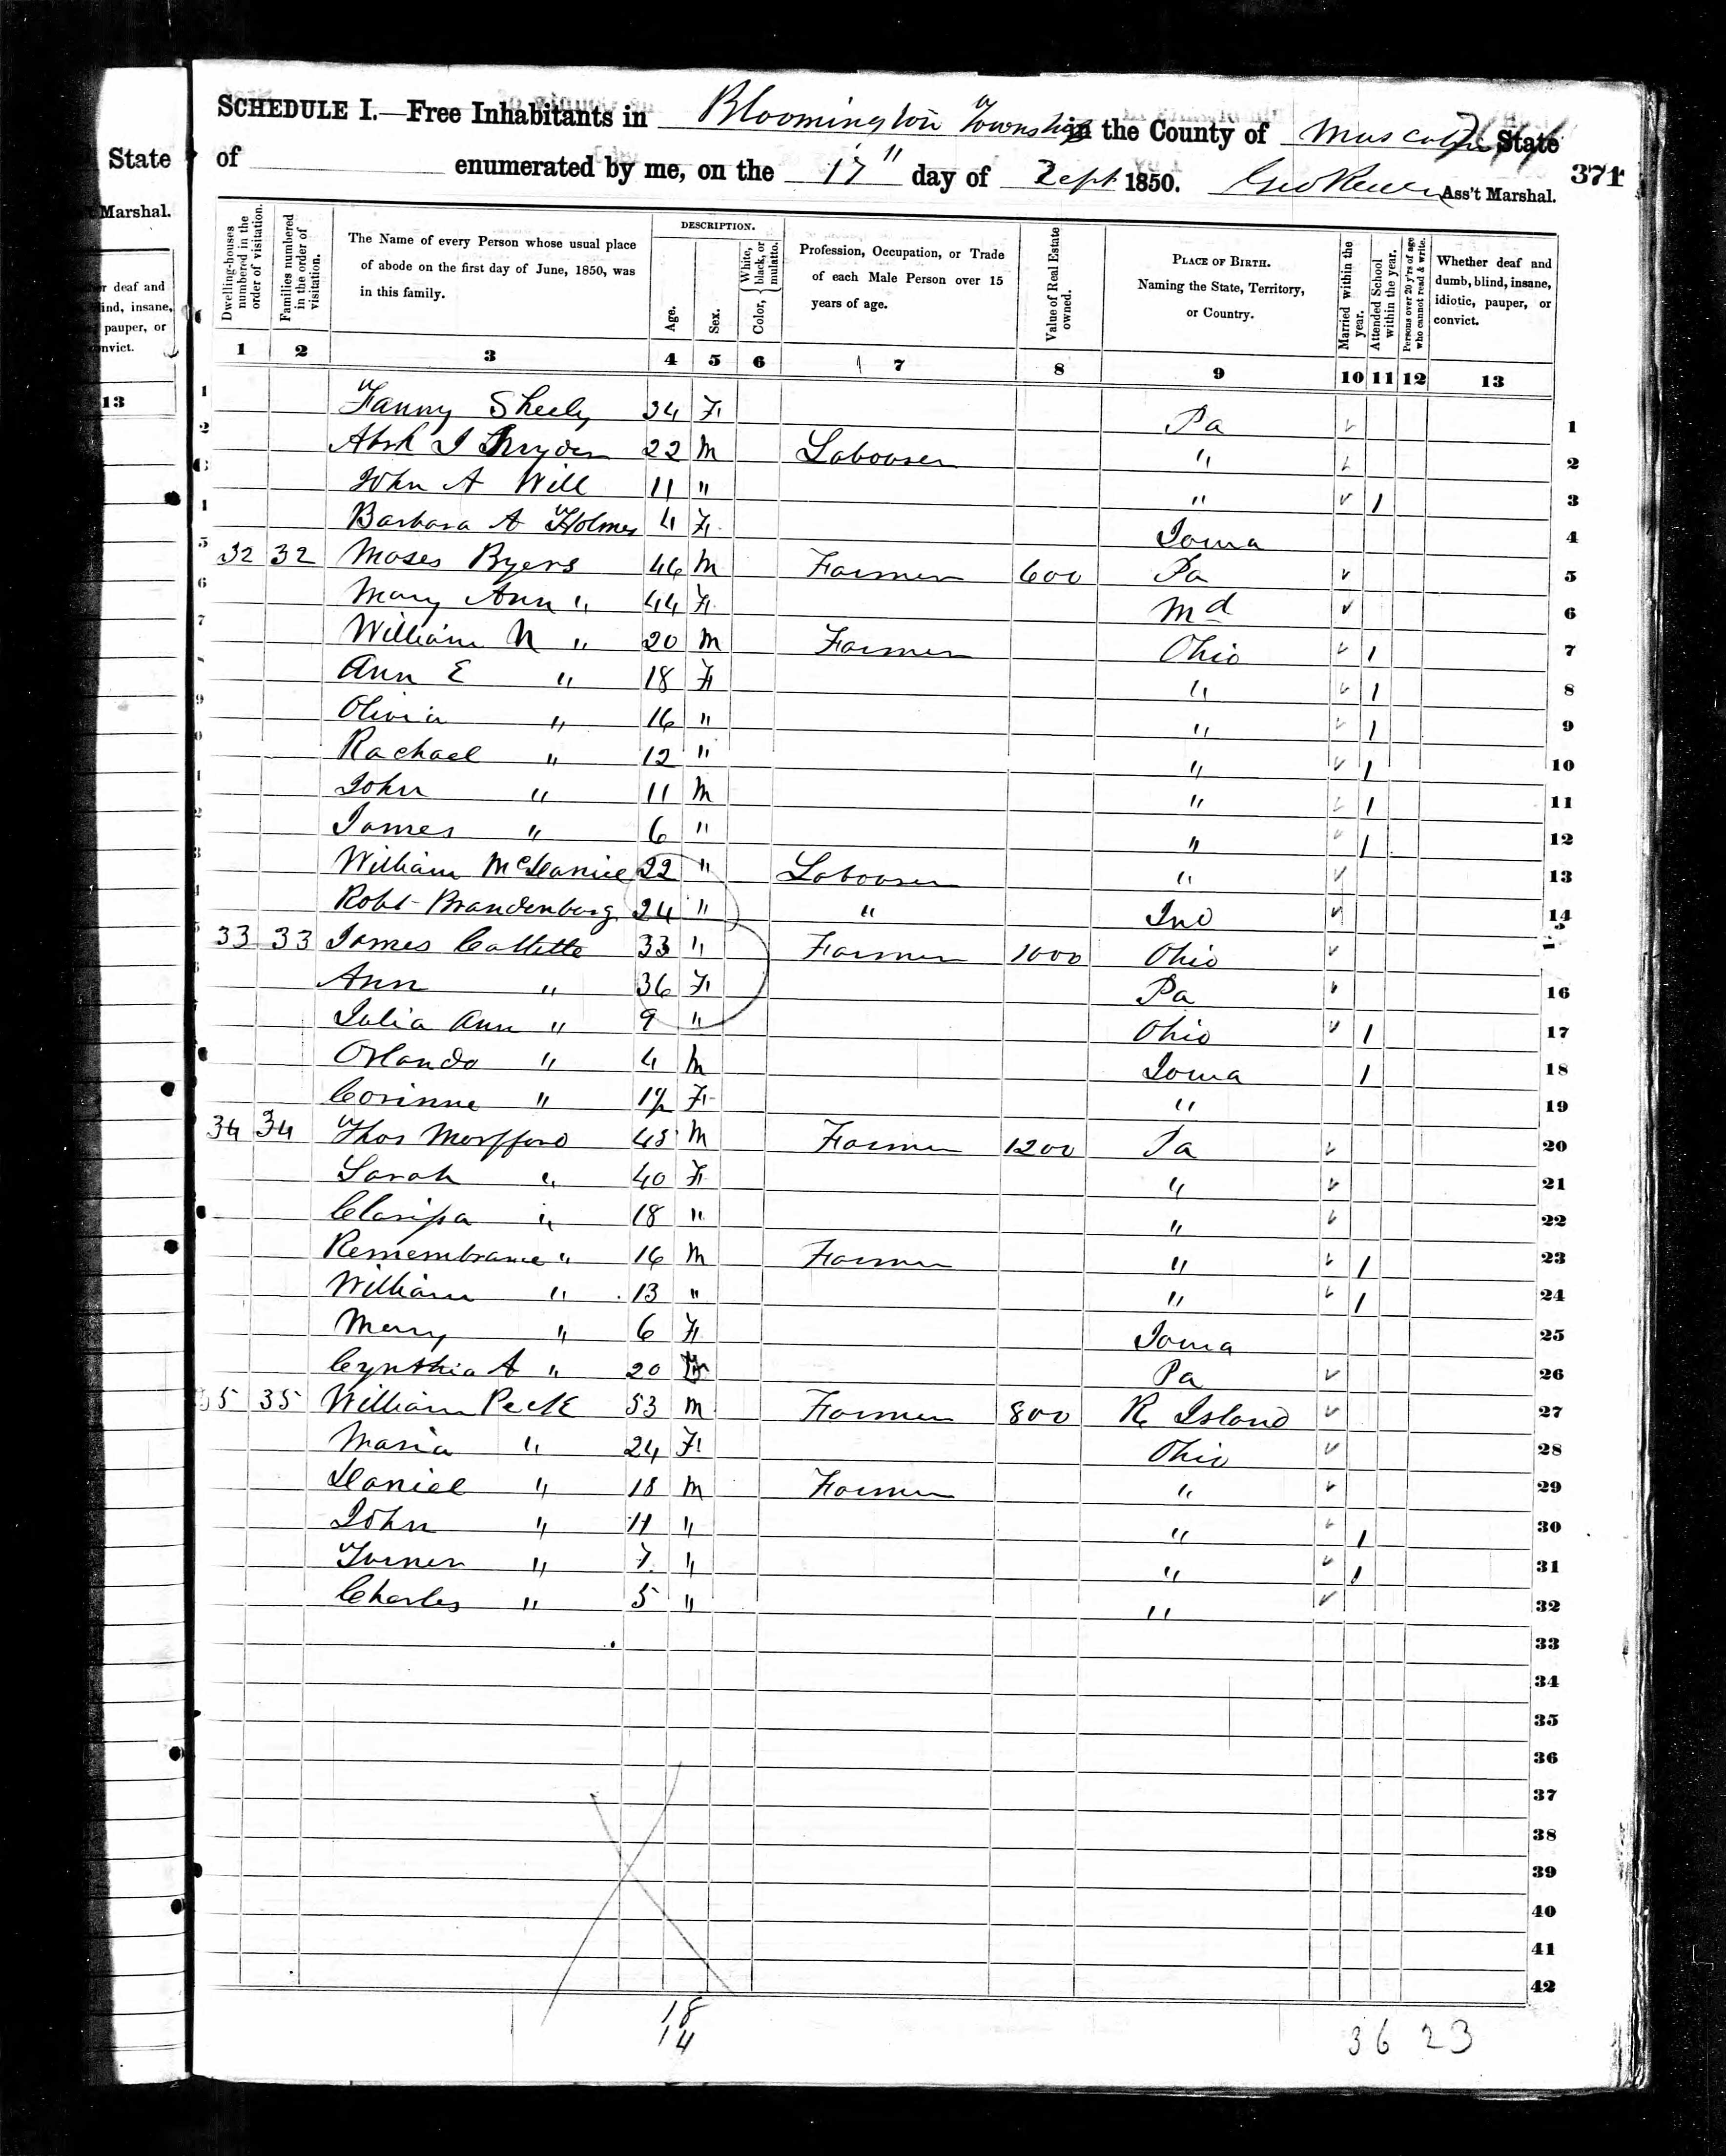 State
Marshal.
r deaf and
ind, insane,
pauper, or
nvict.
13
SCHEDULE I.—Free Inhabitants in Bloomington Township in the County of State
of enumerated by me, on the 17" day of Sept 1850. Ass't Marshal.
371
Dwelling-houses numbered in the order of visitation.
Families numbered in the order of visitation.
The Name of every Person whose usual place
of abode on the first day of June, 1850, was
in this family.
DESCRIPTION.
Age.
Sex.
Color, { White, black, or mulatto.
Profession, Occupation, or Trade
of each Male Person over 15
years of age.
Value of Real Estate owned.
PLACE OF BIRTH.
Naming the State, Territory,
or Country.
Married within the year.
Attended School within the year.
Persons over 20 y'rs of age who cannot read & write.
Whether deaf and
dumb, blind, insane,
idiotic, pauper, or
convict.
1 2 3 4 5 6 7 8 9 10 11 12 13
1 Fanny Sheely 34 F Pa 1
2 Absh J Snyder 22 M Labourer " 2
John A Will 11 " " 1 3
Barbara A Holmes 4 F Iowa 4
5 32 32 Moses Byers 46 M Farmer 600 Pa 5
6 Mary Ann " 44 F Md 6
7 William N " 20 M Farmer Ohio 1 7
Ann E " 18 F " 1 8
9 Olivia " 16 " " 1 9
Rachael " 12 " " 1 10
John " 11 M " 1 11
James " 6 " " 1 12
William McDaniel 22 " Labourer " 13
Robt Brandenburg 24 " " Ind 14
33 33 James Collette 33 " Farmer 1000 Ohio
Ann " 36 F Pa 16
Julia Ann " 9 " Ohio 1 17
Orlando " 4 M Iowa 1 18
Corinne " 1/2 F " 19
34 34 Thos Morfford 45 M Farmer 1200 Pa 20
Sarah " 40 F " 21
Clarissa " 18 " " 22
Remembrance " 16 M Farmer " 1 23
William " 13 " " 1 24
Mary " 6 F Iowa 25
Cynthia A " 20 F Pa 26
35 35 William Peck 53 M Farmer 800 R Island 27
Maria " 24 F Ohio 28
Daniel " 18 M Farmer " 29
John " 11 " " 1 30
Turner " 7 " " 1 31
Charles " 5 " " 32
33
34
35
36
37
38
39
40
41
42
18
14
36 23